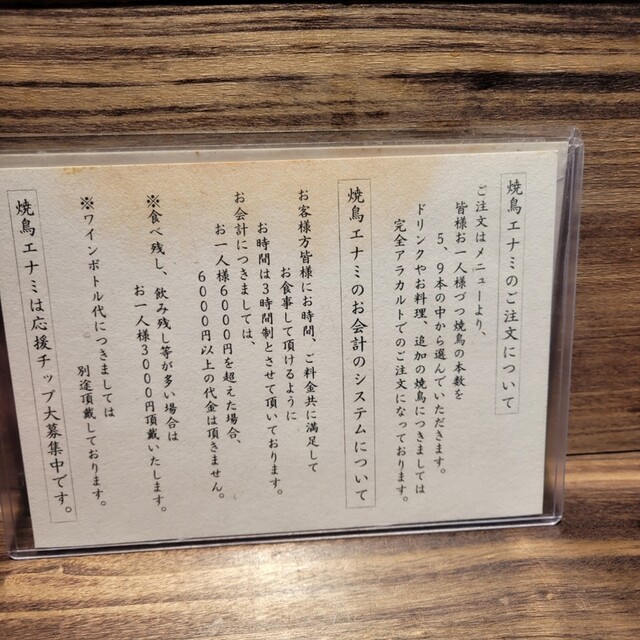 焼鳥エナミのご注文について
ご注文はメニューより、
皆様お一人様づつ焼鳥の本数を
5、9本の中から選んでいただきます。
ドリンクやお料理、追加の焼鳥につきましては
完全アラカルトでのご注文になっております。
焼鳥エナミのお会計のシステムについて
お客様方皆様にお時間、ご料金共に満足して
お食事して頂けるように
お時間は3時間制とさせて頂いております。
お会計につきましては、
お一人様6000円を超えた場合、
6000円以上の代金は頂きません。
※食べ残し、飲み残し等が多い場合は
お一人様3000円頂戴いたします。
※ワインボトル代につきましては
別途頂戴しております。
焼鳥エナミは応援チップ大募集中です。